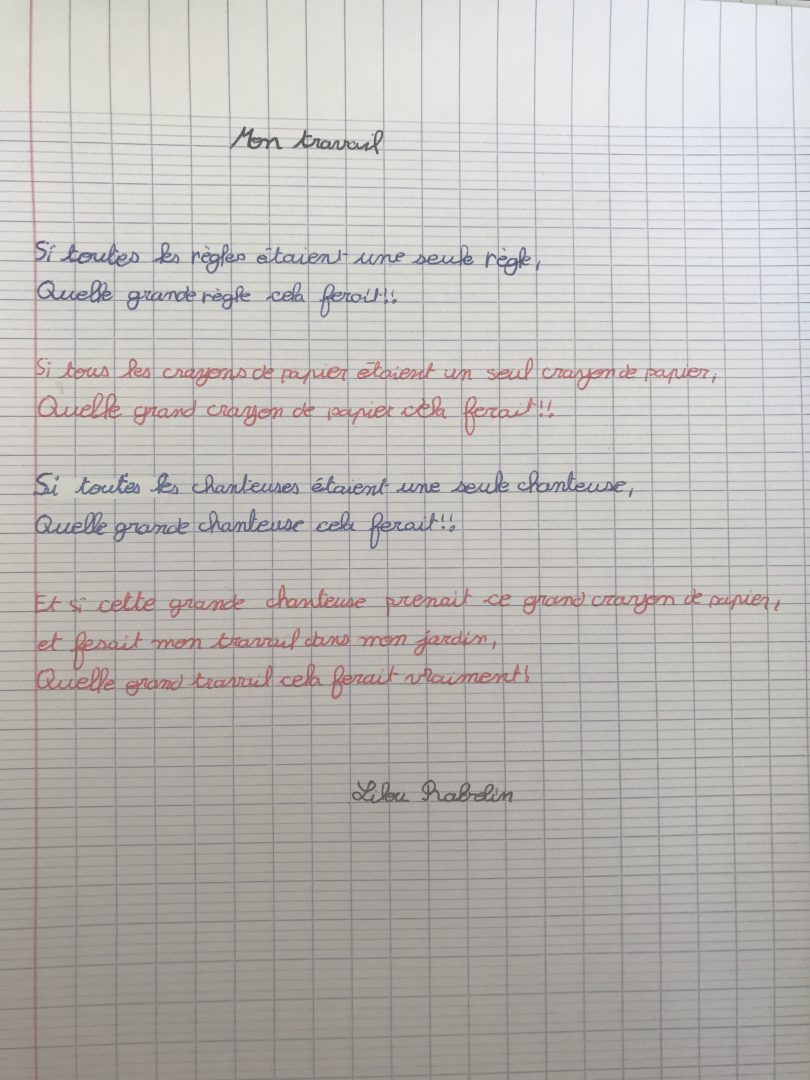 Mon travail
Si toutes les règles étaient une seule règle,
Quelle grande règle cela ferait!!
Si tous les crayons de papier étaient un seul crayon de papier,
Quelle grand crayon de papier cela ferait!!
Si toutes les chanteuses étaient une seule chanteuse,
Quelle grande chanteuse cela ferait!!
Et si cette grande chanteuse prenait ce grand crayon de papier,
et fesait mon travail dans mon jardin,
Quelle grand travail cela ferait vraiment!
Lilou